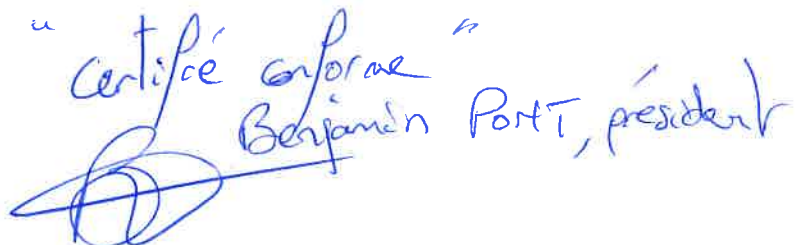 "certifié conforme"
Benjamin PONT, président